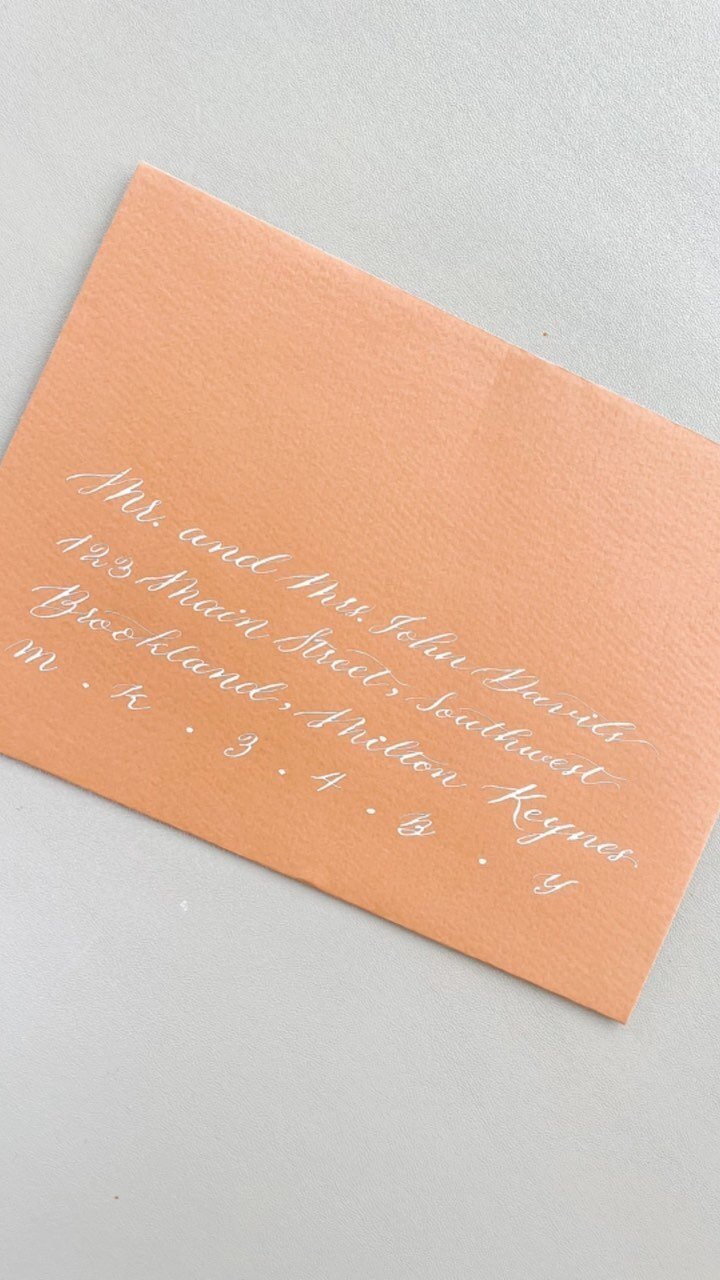 Mr. and Mrs. John Davils
123 Main Street, Southwest
Brookland, Milton Keynes
M · K · 3 · 4 · B · Y